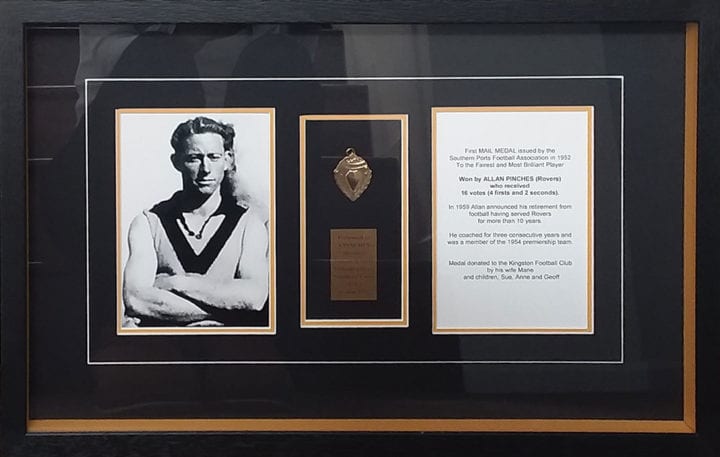 First MAIL MEDAL issued by the
Southern Ports Football Association in 1952
To the Fairest and Most Brilliant Player
Won by ALLAN PINCHES (Rovers)
who received
16 votes (4 firsts and 2 seconds).
In 1959 Allan announced his retirement from
football having served Rovers
for more than 10 years.
He coached for three consecutive years and
was a member of the 1954 premiership team.
Medal donated to the Kingston Football Club
by his wife Marie
and children, Sue, Anne and Geoff